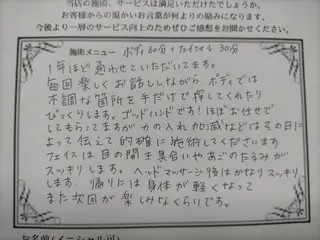 当店の施術、サービスは満足いただけたでしょうか。
お客様からの温かいお言葉が何よりの励みになります。
今後より一層のサービス向上のためぜひご感想をお聞かせください。
施術メニュー ボディ60分+フェイシャル30分
1年ほど通わせていただいてます。
毎回楽しくお話ししながら ボディでは
不調な箇所を手だけで探してくれたり
びっくりします。ゴッドハンドです!ほぼお任せで
してもらってますが 力の入れ加減などはその日に
よって伝えて的確に施術してくださいます
フェイスは目の開き具合いやあごのたるみが
スッキリします。ヘッドマッサージ後はかなりスッキリ
します。帰りには身体が軽くなって
また次回が楽しみなくらいです。
お名前(イニシャル可)